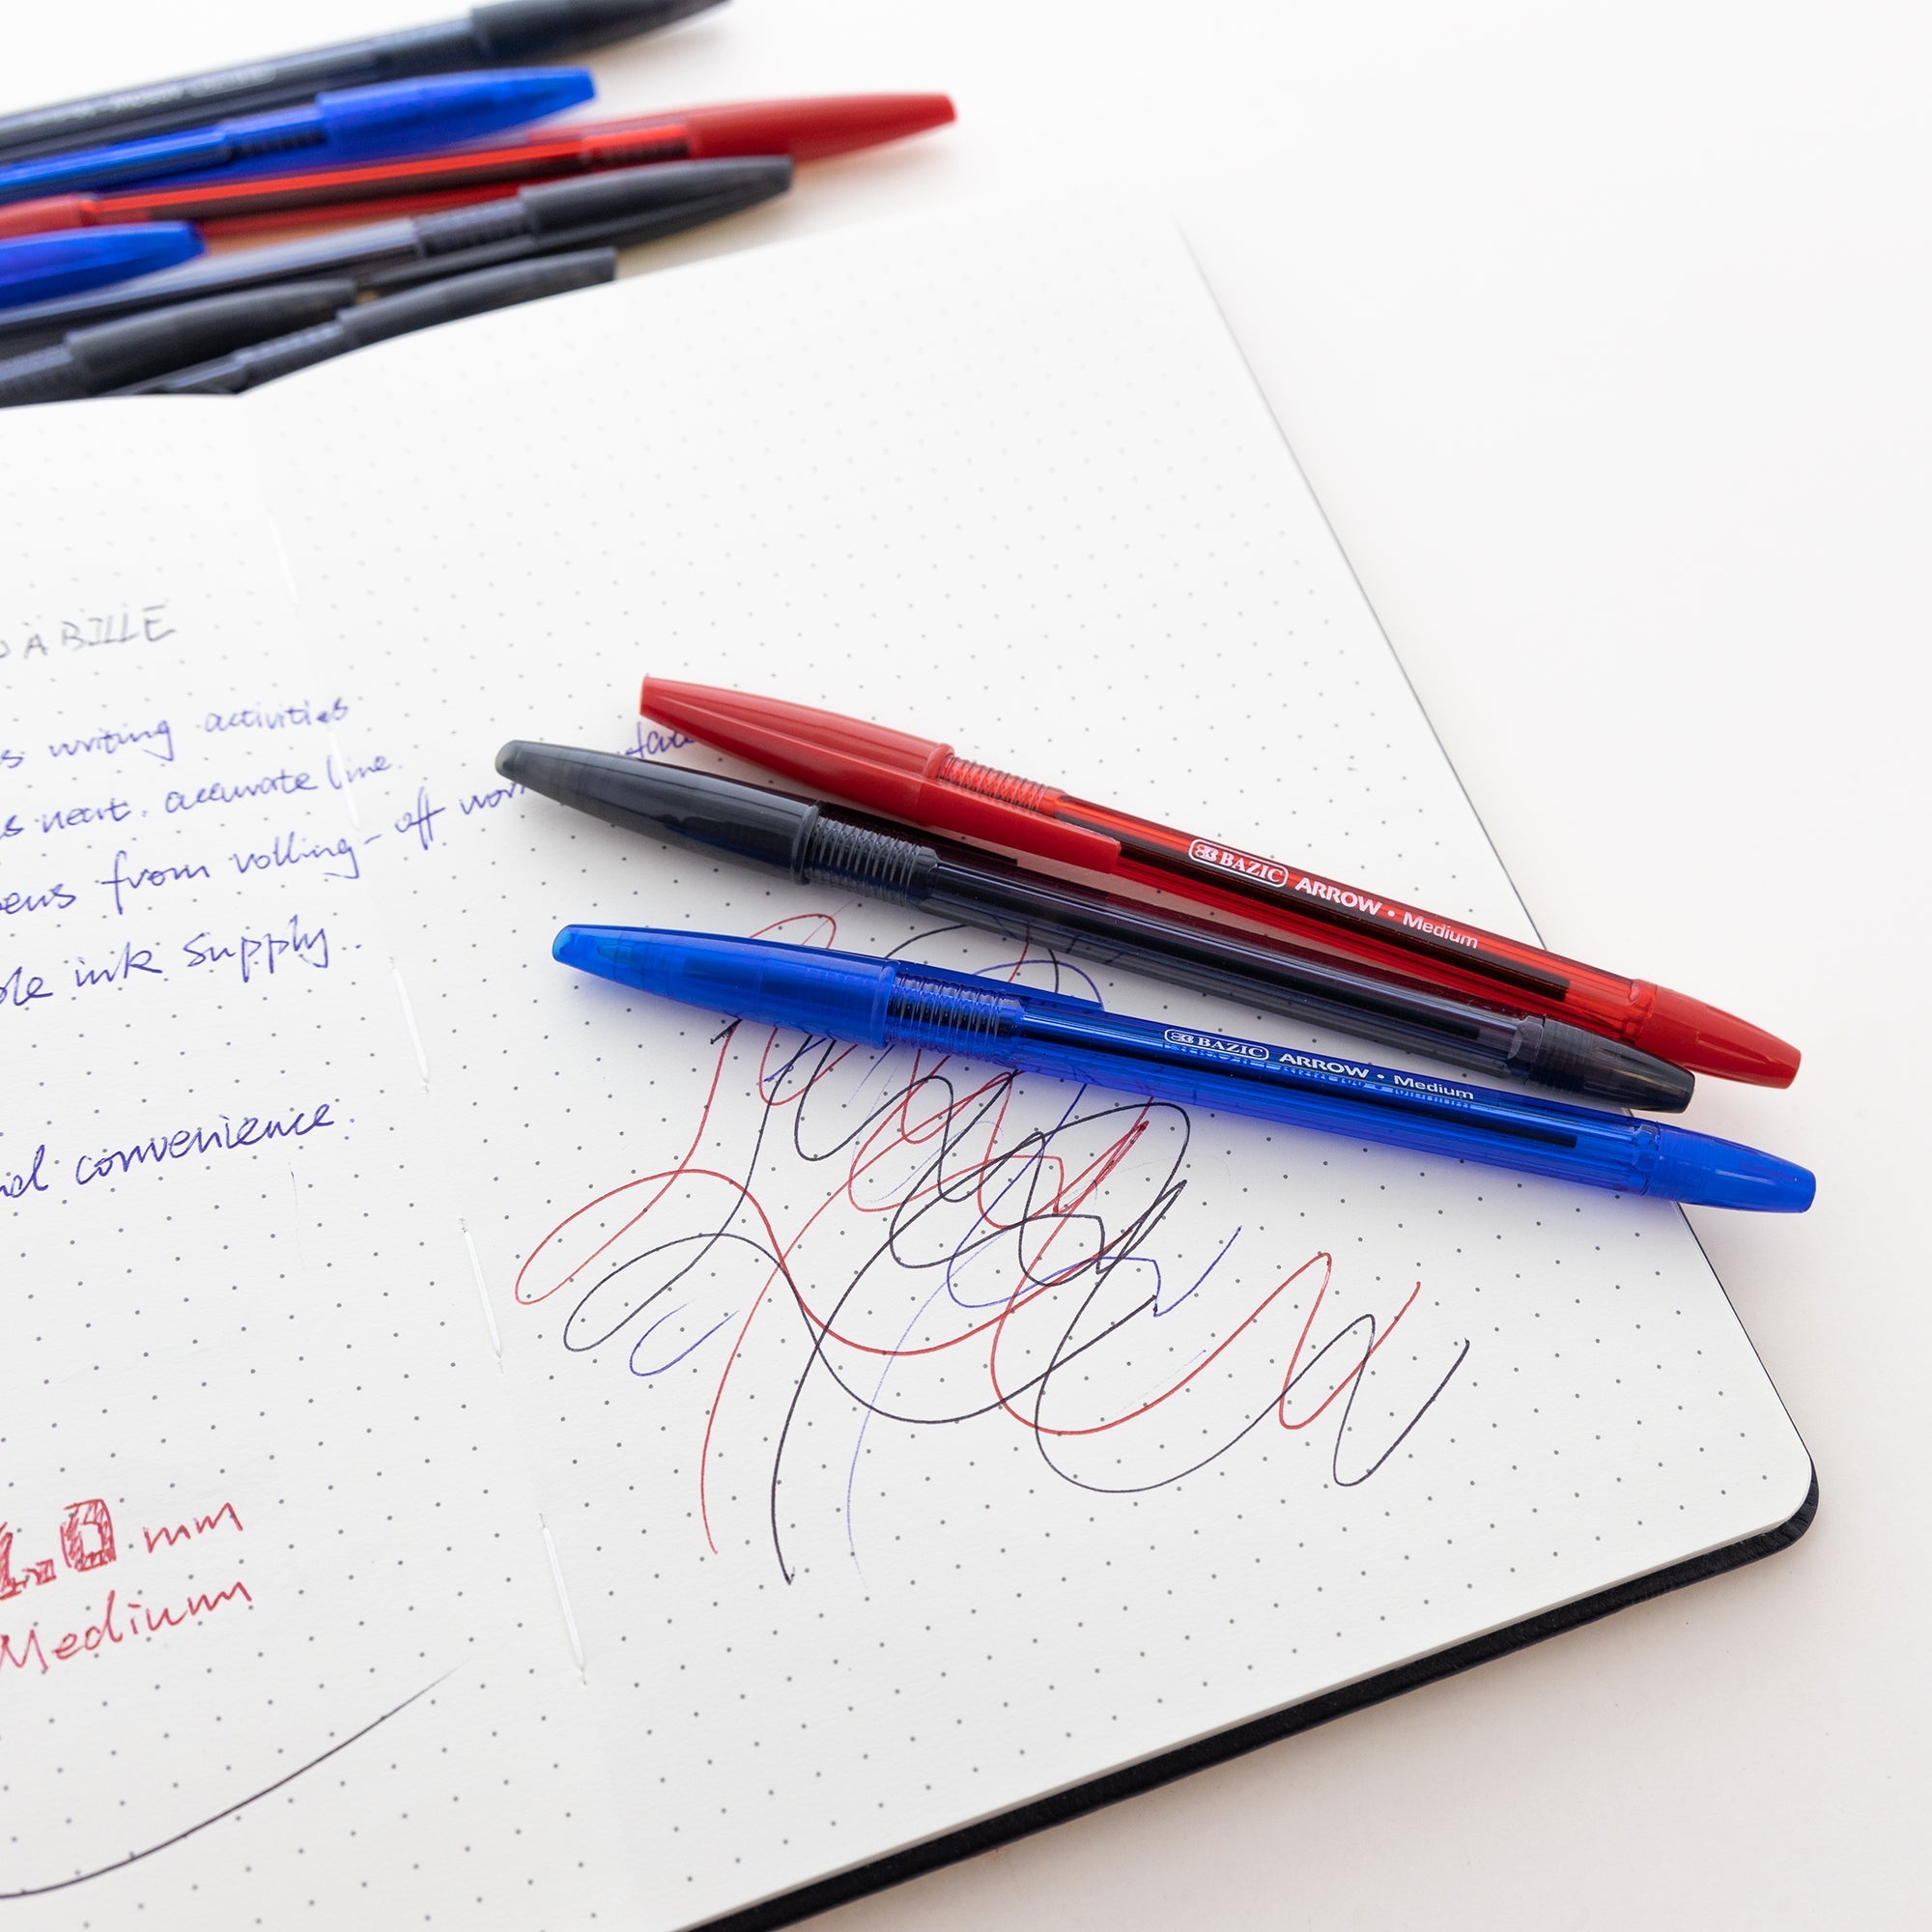 À BILLE
s writing activities
s neat. accurate line.
ens from rolling-off work
le ink supply.
nd convenience.
1.0 mm
Medium
BAZIC ARROW • Medium
BAZIC ARROW • Medium